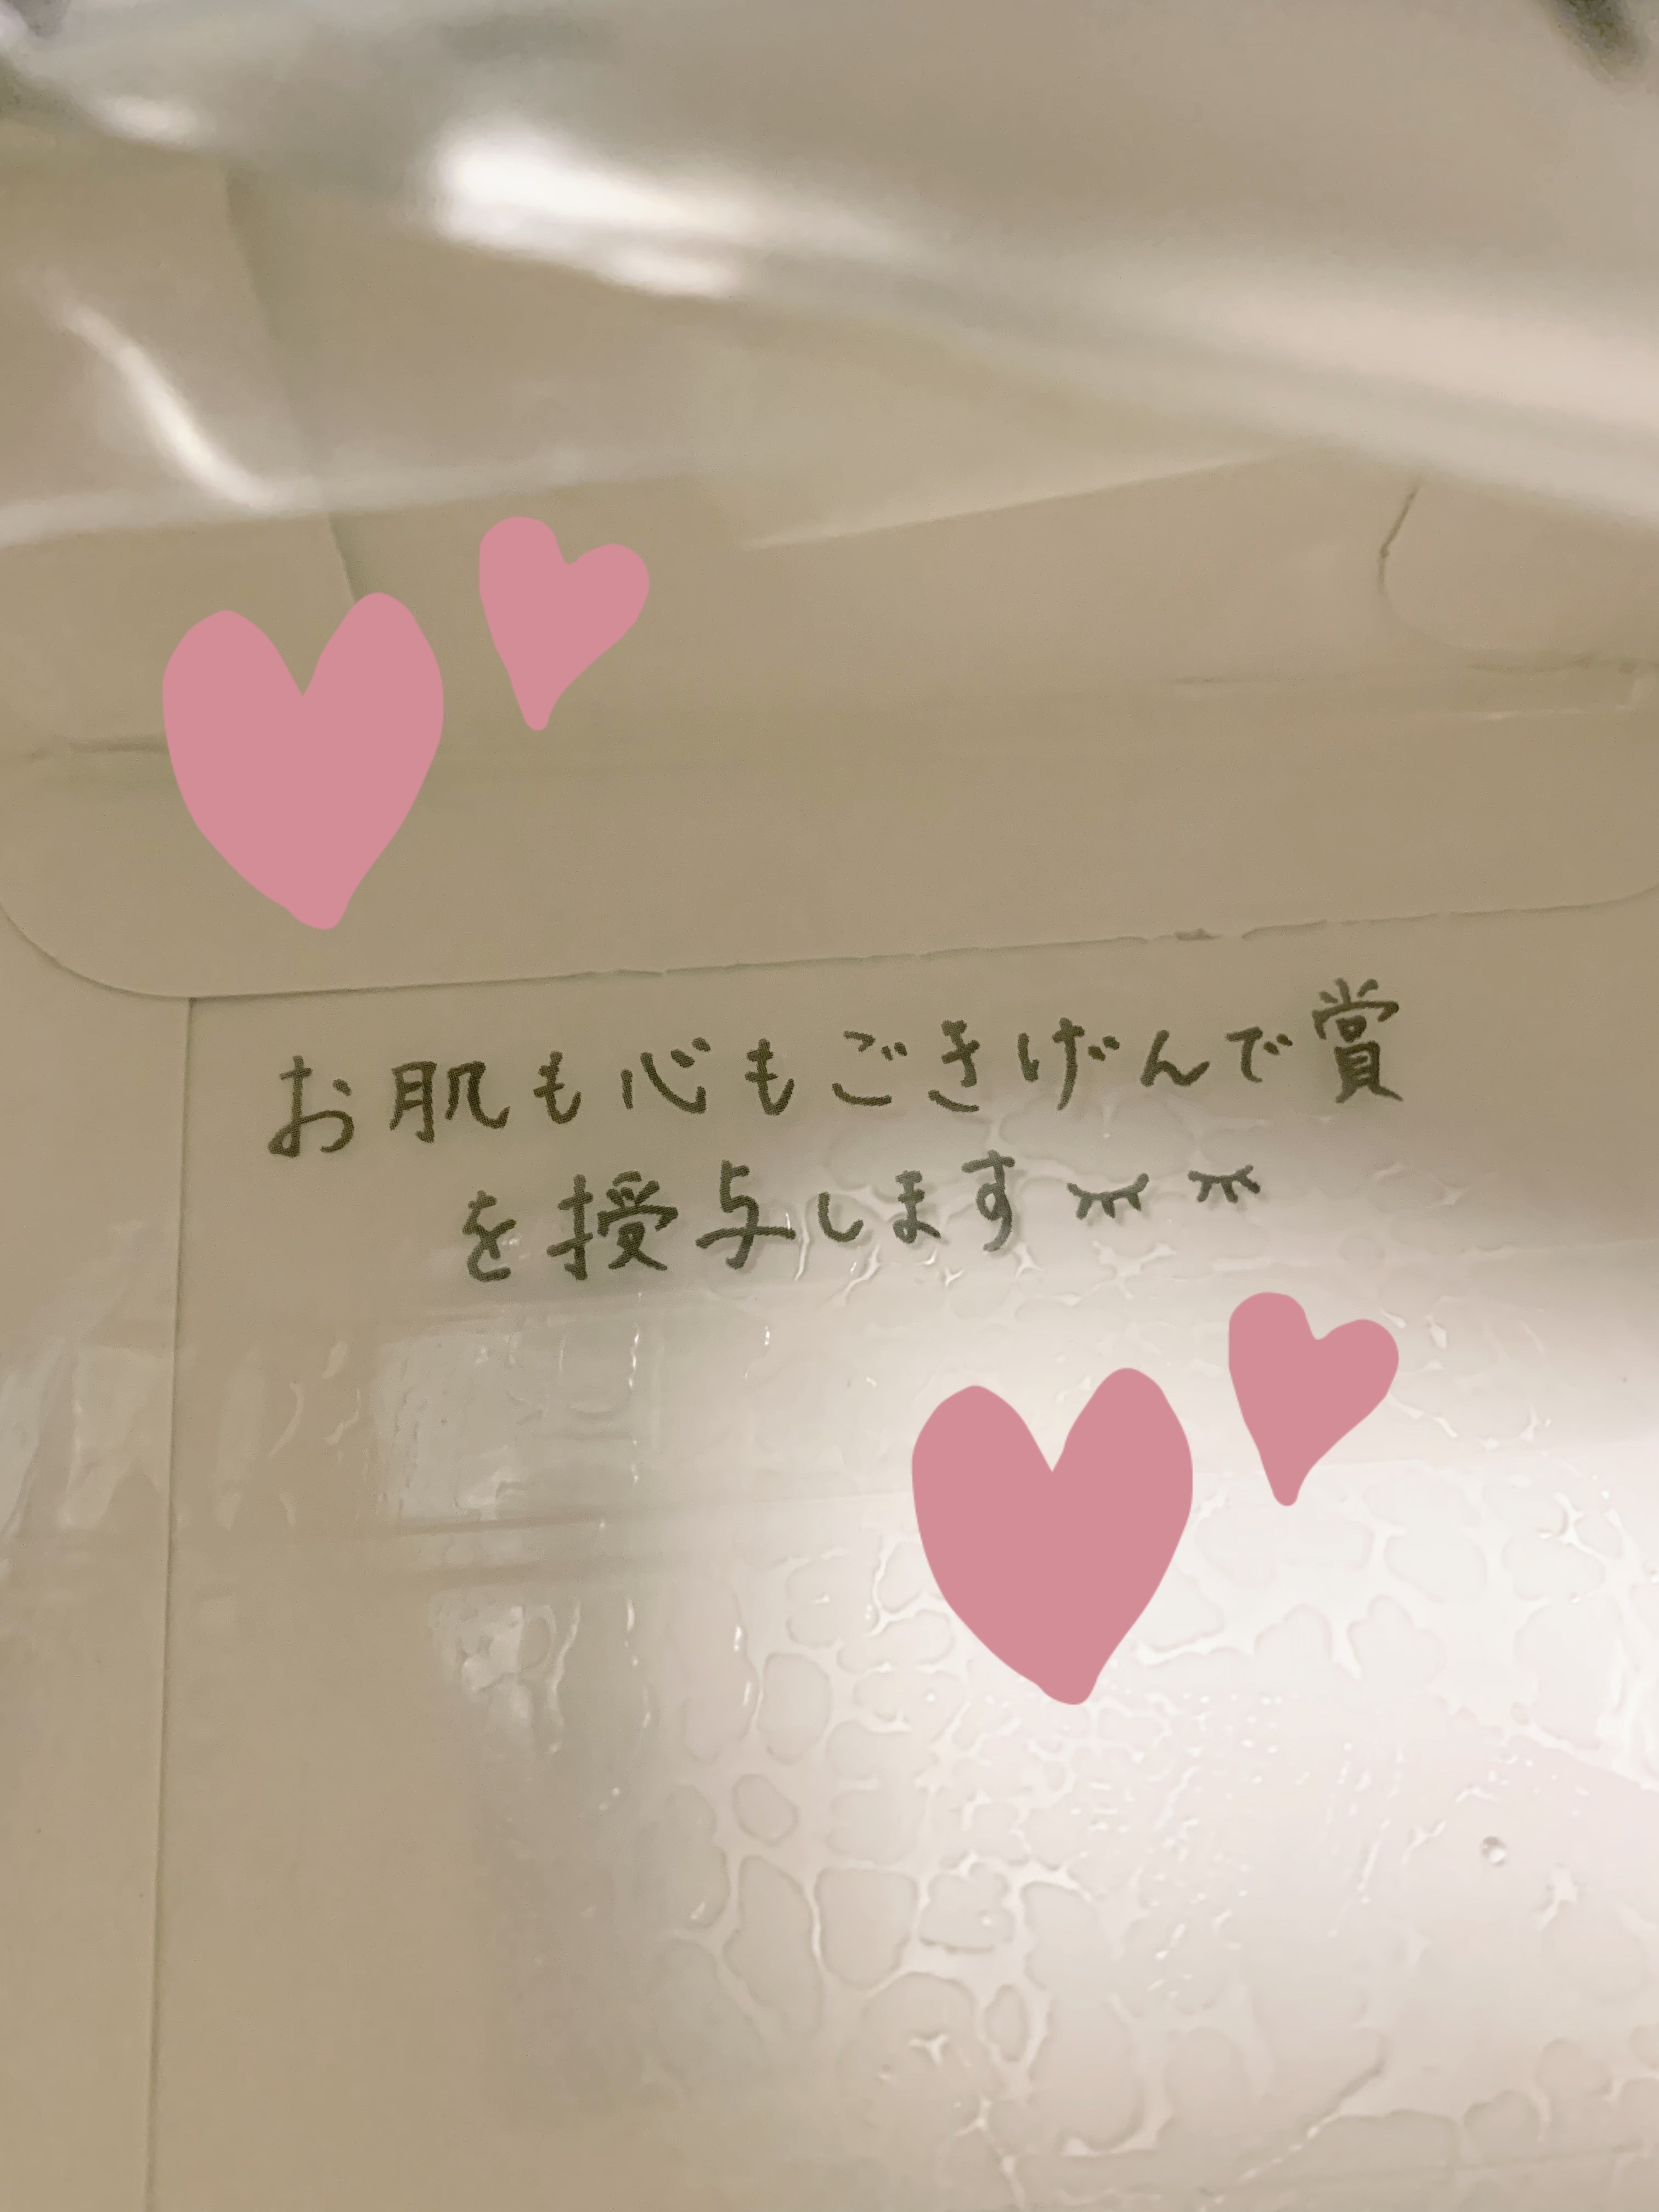 お肌も心もごきげんで賞
を授与します